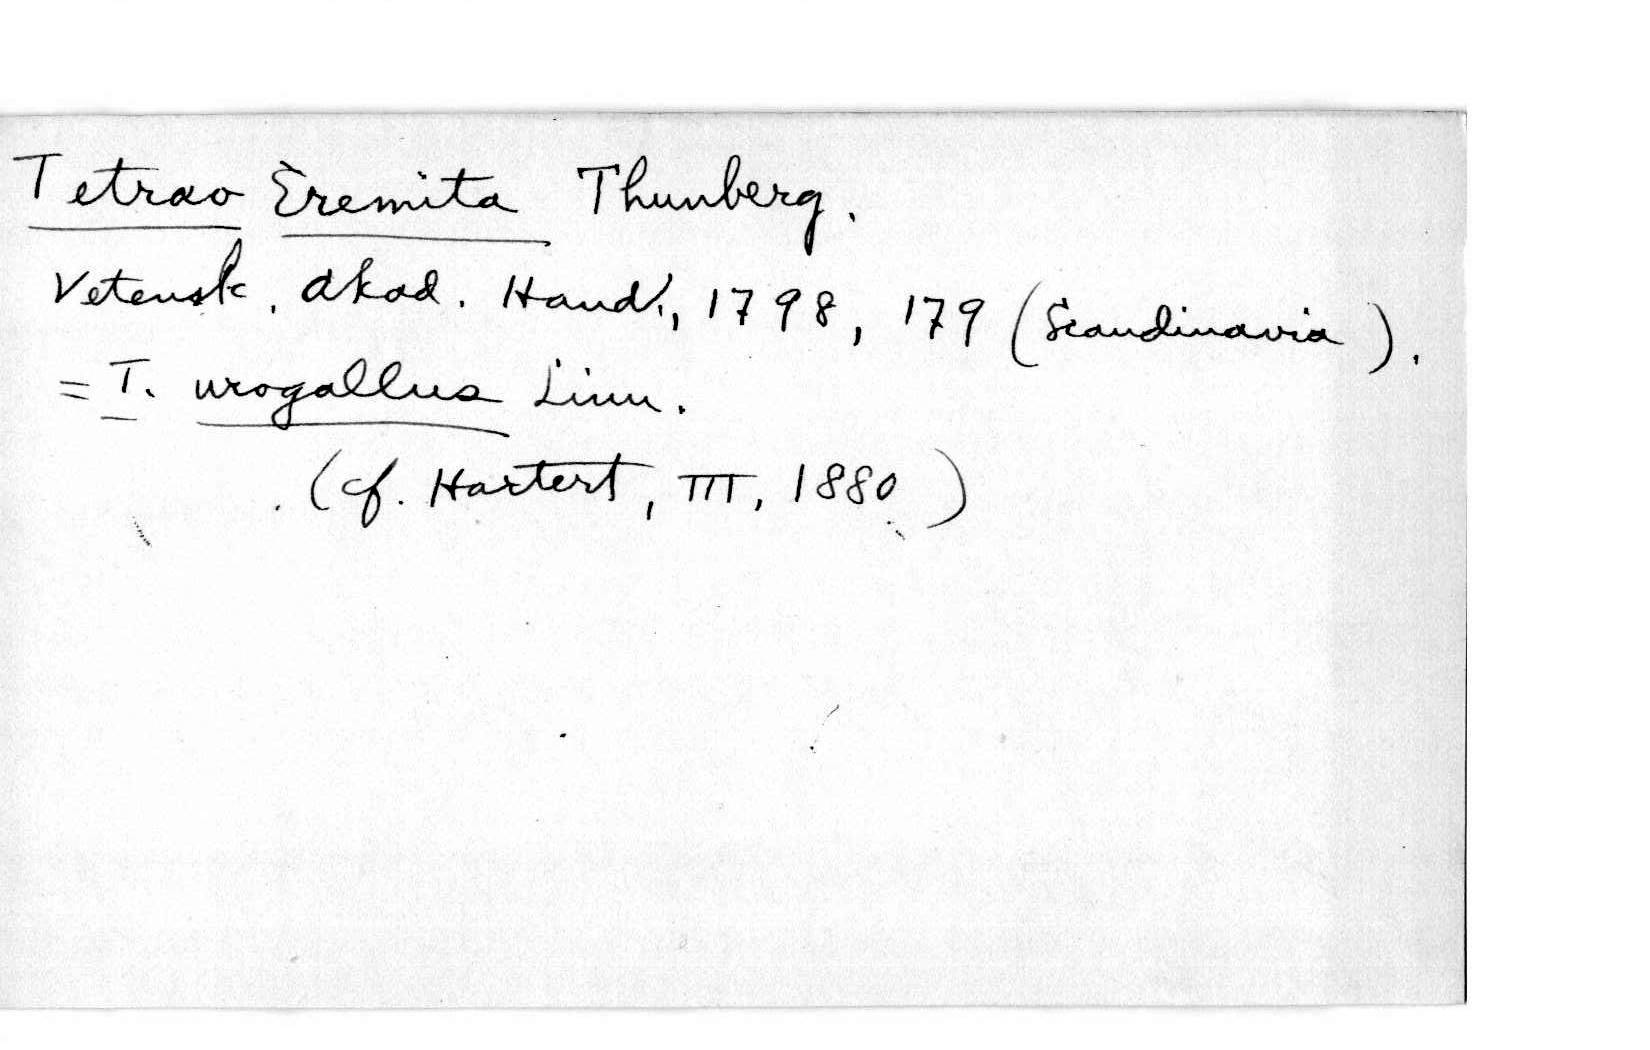 Tetrao Eremita Thunberg.
Vetensk. Akad. Handl., 1798, 179 (Scandinavia).
= T. urogallus Linn.
(cf. Hartert, III, 1880)